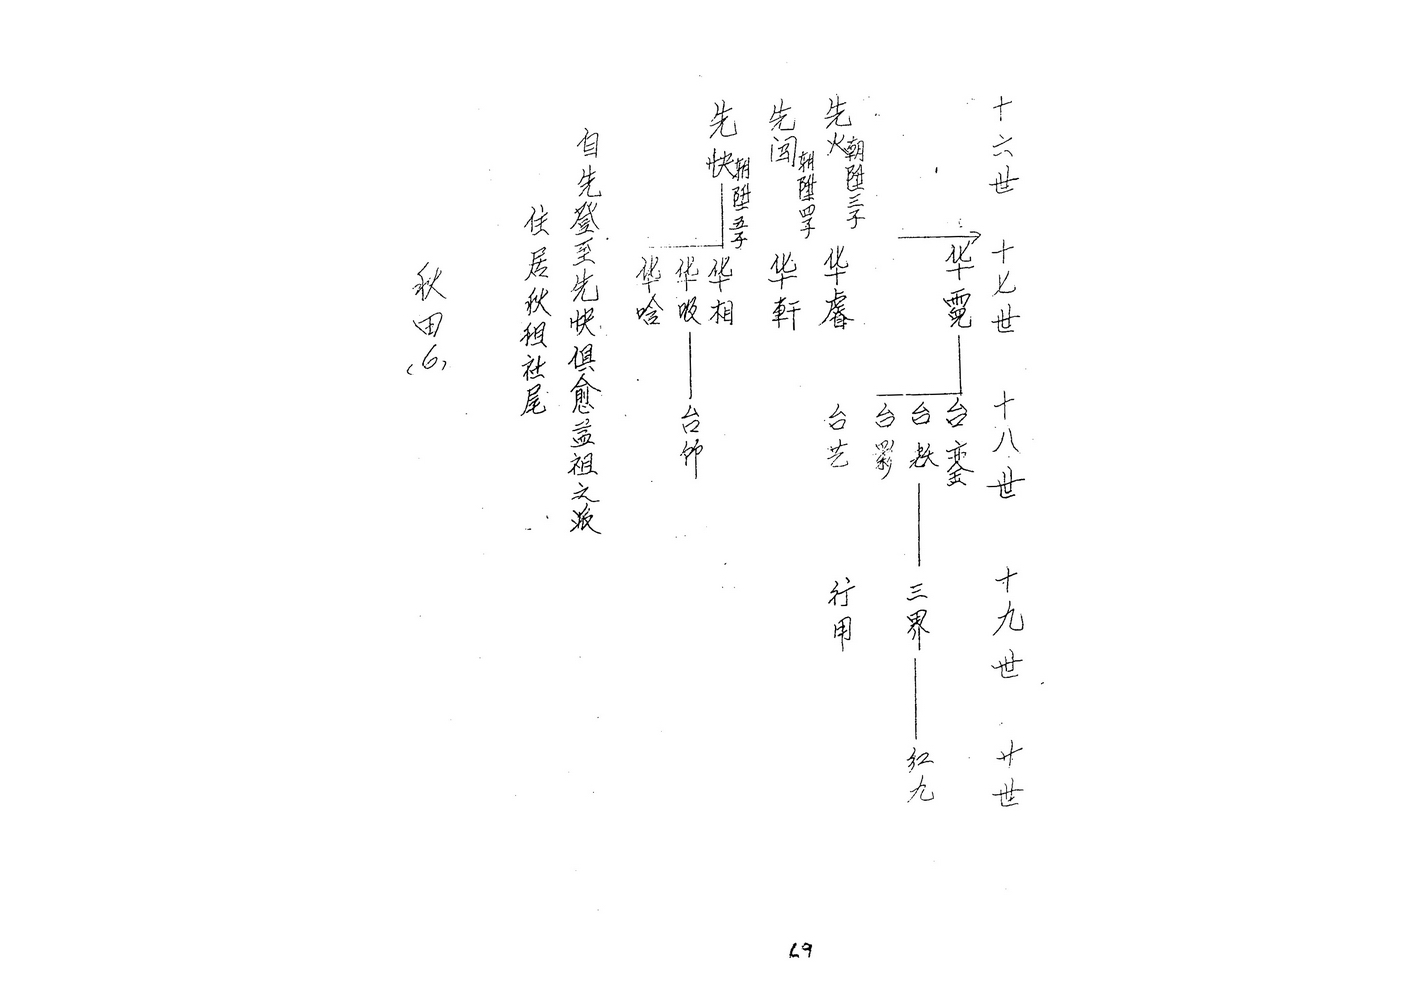 十六世
十七世
十八世
十九世
廿世
华霓
台銮
台
台影
三界
红九
先火
朝陞三子
华睿
台艺
行用
先闯
朝陞四子
华軒
先快
朝陞五子
华相
华吸
华哈
台
自先登至先快俱愈益祖之派
住居秋租社尾
秋田(6)
69